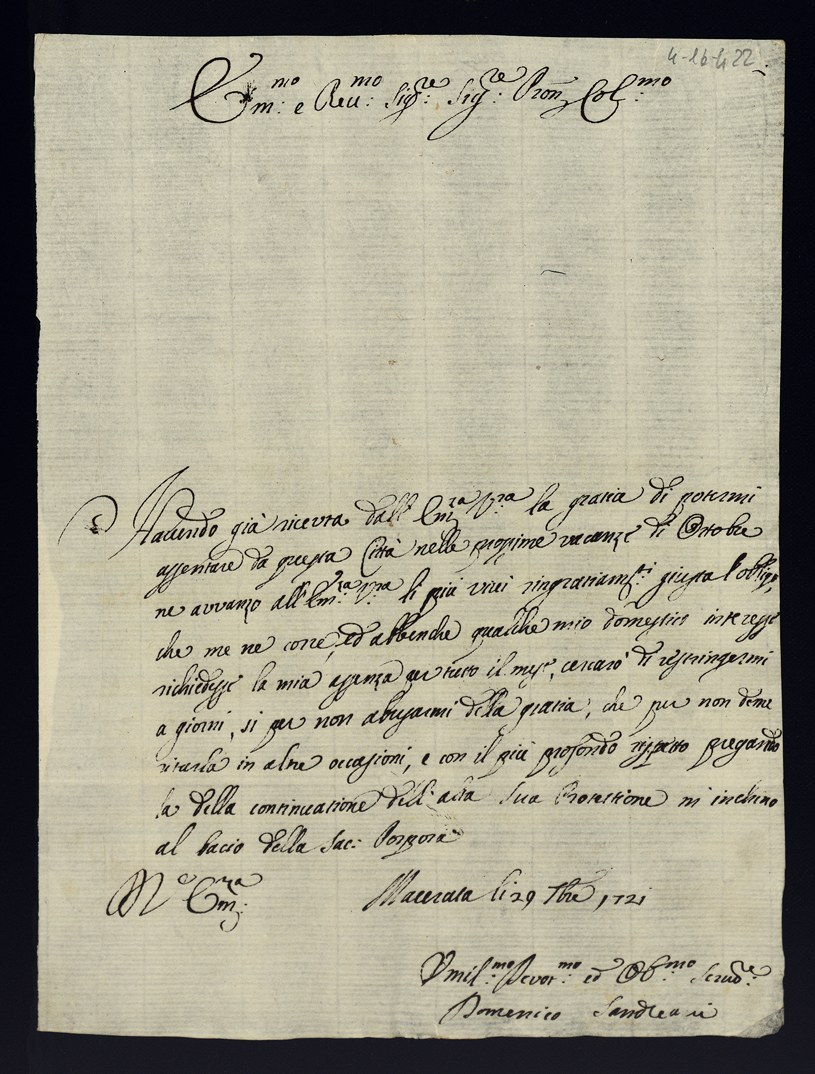 4-16-422
Em:mo e Reu:mo Sig:re Sig:re Pron Col:mo
Hauendo già riceuta dall' Em:za V:ra la gratia di potermi
assentare da questa Città nelle prossime vacanze di Ottobre
ne avvanzo all' Em:za V:ra li più viui ringratiam:ti giusta l'obligo,
che me ne corre, ed abbenche qualche mio domestico interesse
richiedesse la mia assenza per tutto il mese, cercarò di restringermi
a giorni, si per non abusarmi della gratia, che per non deme
ritarla in altre occasioni, e con il più profondo rispetto pregando
la della continuatione dell' alta sua Protettione m'inchino
al bacio della Sac: Porpora
Em:za
Macerata li 29 7bre 1721
Vmil:mo Deuot:mo ed Ob:mo Seruo:re
Domenico